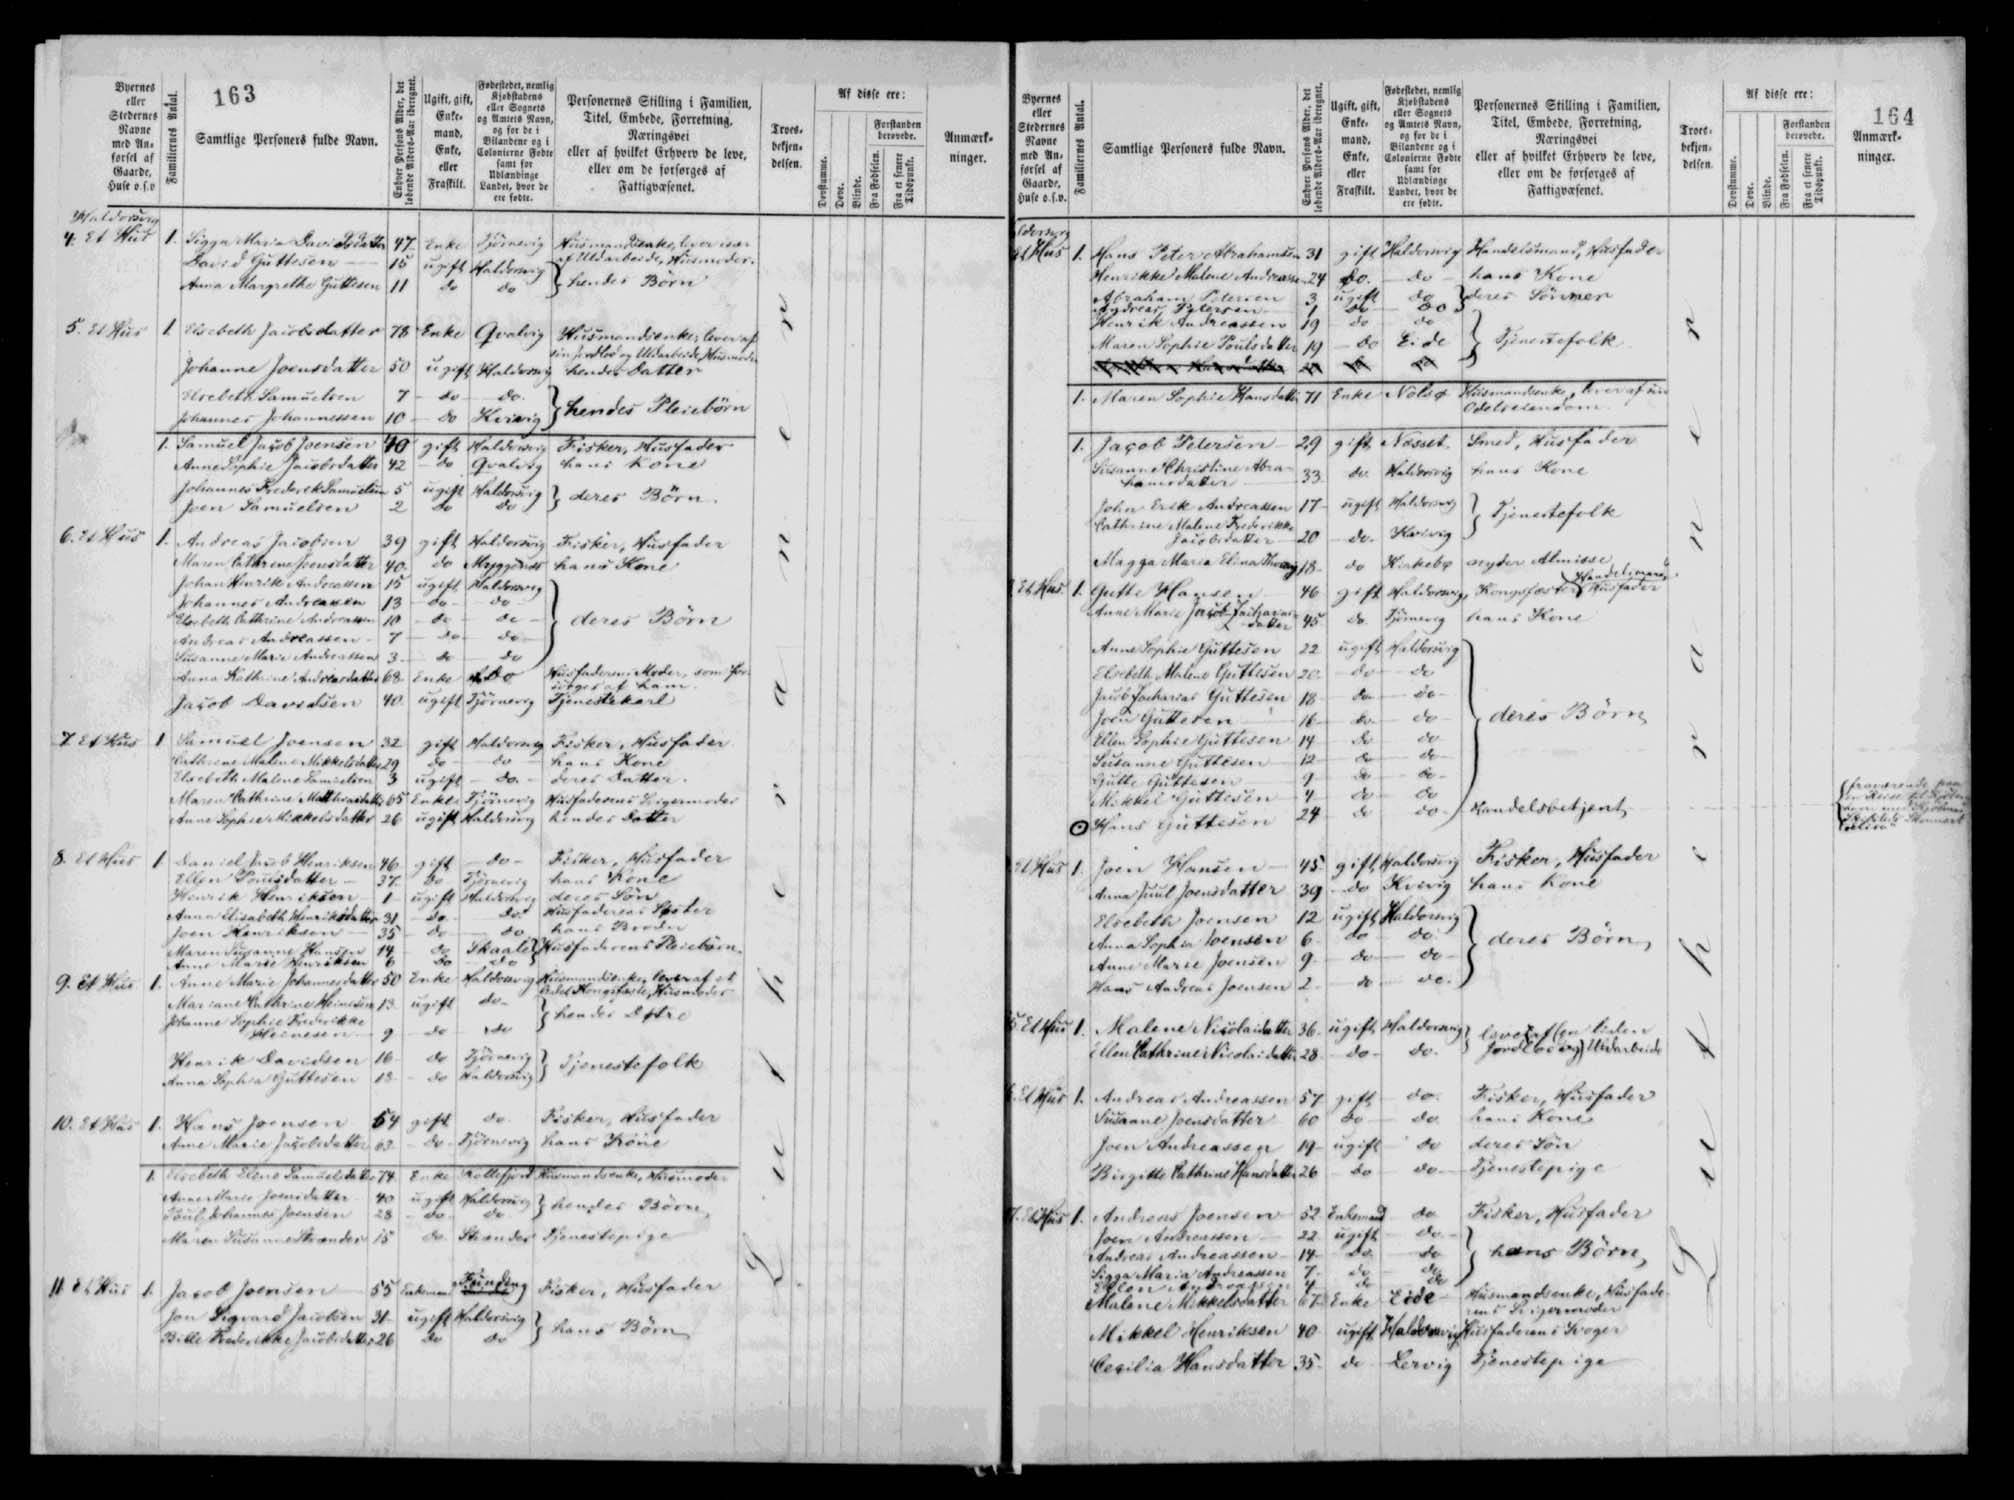 163
Byernes eller Stedernes Navne med Anførsel af Gaarde, Huse o.s.v.
Familiernes Antal.
Samtlige Personers fulde Navn.
Enhver Persons Alder, det løbende Alders-Aar iberegnet.
Ugift, gift, Enkemand, Enke, eller Fraskilt.
Fødestedet, nemlig Kjøbstadens eller Sognets og Amtets Navn, og for de i Bilandene og i Colonierne Fødte samt for Udlændinge Landet, hvor de ere fødte.
Personernes Stilling i Familien, Titel, Embede, Forretning, Næringsvei eller af hvilket Erhverv de leve, eller om de forsørges af Fattigvæsenet.
Troesbekjendelsen.
Af disse ere:
Døvstumme.
Døve.
Blinde.
Forstanden berøvede.
Fra Fødselen.
Fra et senere Tidspunkt.
Anmærkninger.
Haldorsvig
4. Et Hus 1. Sigga Maria Davidsdatter 47 Enke Tjörnevig Husmandsenke, lever især af Uldarbeide, Husmoder.
David Guttesen 15 ugift Haldorsvig
Anna Margrethe Guttesen 11 do do } hendes Börn
5. Et Hus 1. Elsebeth Jacobsdatter 78 Enke Qvalvig Husmandsenke, lever af sin Jordlod og Uldarbeide, Husmoder
Johanne Joensdatter 50 ugift Haldorsvig hendes Datter
Elsebeth Samuelsen 7 do do
Johannes Johannessen 10 do Kvivig } hendes Pleiebörn
1. Samuel Jacob Joensen 40 gift Haldorsvig Fisker, Husfader
Anne Sophie Jacobsdatter 42 do Qvalvig hans Kone
Johannes Frederek Samuelsen 5 ugift Haldorsvig
Joen Samuelsen 2 do do } deres Börn
6. Et Hus 1. Andreas Jacobsen 39 gift Haldorsvig Fisker, Husfader
Maren Cathrine Joensdatter 40 do Myggenæs hans Kone
Johan Henrik Andreassen 15 ugift Haldorsvig
Johannes Andreassen 13 do do
Elsebeth Cathrine Andreassen 10 do do } deres Börn
Andreas Andreassen 7 do do
Susanne Marie Andreassen 3 do do
Anna Kathrine Andreasdatter 68 Enke do Husfaderens Moder, som forsörges af ham.
Jacob Davidsen 40 ugift Tjörnevig Tjenestekarl
7. Et Hus 1 Samuel Joensen 32 gift Haldorsvig Fisker, Husfader
Cathrine Malene Mikkelsdatter 29 do do hans Kone
Elsebeth Malene Samuelsen 3 ugift do deres Datter.
Maren Cathrine Matthiasdatter 65 Enke Tjörnevig Husfaderens Svigermoder
Anne Sophie Mikkelsdatter 26 ugift Haldorsvig hendes Datter
8. Et Hus 1 Daniel Jacob Henriksen 46 gift do Fisker, Husfader
Ellen Poulsdatter 37 do Tjörnevig hans Kone
Henrik Henriksen 1 ugift Haldorsvig deres Sön
Anna Elisabeth Henriksdatter 31 do do Husfaderens Söster
Joen Henriksen 35 do do hans Broder
Maren Susanne Hansen 14 do Skaale
Anne Marie Henriksen 6 do do } Husfaderens Pleiebörn
9. Et Hus 1. Anne Marie Johannesdatter 50 Enke Haldorsvig Husmandsenke, lever af et Kongsfæste, Husmoder
Mariane Cathrine Heinesen 13 ugift do
Johanne Sophie Frederikke Heinesen 9 do do } hendes Døtre
Henrik Davidsen 16 do Tjörnevig
Anna Sophia Guttesen 18 do Haldorsvig } Tjenestefolk
10. Et Hus 1. Hans Joensen 64 gift do Fisker, Husfader
Anne Marie Jacobsdatter 63 do Tjörnevig hans Kone
1. Elsebeth Elene Samuelsdatter 74 Enke Kollefjord Husmandsenke, Husmoder
Anne Marie Joensdatter 40 ugift Haldorsvig
Poul Johannes Joensen 28 do do } hendes Börn
Maren Susanne Strender 15 do Strender Tjenestepige
11 Et Hus 1. Jacob Joensen 55 Enkemand Funding Fisker, Husfader
Jon Sigvard Jacobsen 31 ugift Haldorsvig
Bille Frederikke Jacobsdatter 26 do do } hans Börn
Lutheranere
164
Byernes eller Stedernes Navne med Anførsel af Gaarde, Huse o.s.v.
Familiernes Antal.
Samtlige Personers fulde Navn.
Enhver Persons Alder, det løbende Alders-Aar iberegnet.
Ugift, gift, Enkemand, Enke, eller Fraskilt.
Fødestedet, nemlig Kjøbstadens eller Sognets og Amtets Navn, og for de i Bilandene og i Colonierne Fødte samt for Udlændinge Landet, hvor de ere fødte.
Personernes Stilling i Familien, Titel, Embede, Forretning, Næringsvei eller af hvilket Erhverv de leve, eller om de forsørges af Fattigvæsenet.
Troesbekjendelsen.
Af disse ere:
Døvstumme.
Døve.
Blinde.
Forstanden berøvede.
Fra Fødselen.
Fra et senere Tidspunkt.
Anmærkninger.
ldorsvig
Et Hus 1. Hans Peter Abrahamsen 31 gift Haldorsvig Handelsmand, Husfader
Henrikke Malene Andreassen 24 do. do hans Kone
Abraham Petersen 3 ugift do } deres Sönner
Andreas Petersen 1 do do
Henrik Andreassen 19 do do
Maren Sophie Poulsdatter 19 do Eide } Tjenestefolk
1. Maren Sophie Hansdatter 71 Enke Nolsø Husmandsenke, lever af sin Odelseiendom.
1. Jacob Petersen 29 gift Næsset Smed, Husfader
Susanne Christine Abrahamsdatter 33 do Haldorsvig hans Kone
John Erik Andreassen 17 ugift Haldorsvig
Cathrine Malene Frederikke Jacobsdatter 20 do. Kvivig } Tjenestefolk
Magga Maria Elina 18 do Kirkebø nyder Almisse
Et Hus 1. Gutte Hansen 46 gift Haldorsvig Kongsfæster, Handelsmand, Husfader
Anne Marie Jacob Zachariasdatter 45 do. Tjörnevig hans Kone
Anne Sophie Guttesen 22 ugift Haldorsvig
Elsebeth Malene Guttesen 20 do do
Jacob Zacharias Guttesen 18 do do
Joen Guttesen 16 do do } deres Börn
Ellen Sophie Guttesen 14 do do
Susanne Guttesen 12 do do
Gutte Guttesen 9 do do
Mikkel Guttesen 4 do do
Hans Guttesen 24 do do Handelsbetjent
fraværende paa en Reise til
Et Hus 1. Joen Hansen 45 gift Haldorsvig Fisker, Husfader
Anna Juul Joensdatter 39 do Kvivig hans Kone
Elsebeth Joensen 12 ugift Haldorsvig
Anna Sophia Joensen 6 do do } deres Börn
Anne Marie Joensen 9 do do
Hans Andreas Joensen 2 do do.
5 Et Hus 1. Malene Nicolaidatter 36 ugift Haldorsvig } lever af (en liden
Ellen Cathrine Nicolaidatter 28 do do. Jordlod og) Uldarbeide
6. Et Hus 1. Andreas Andreassen 57 gift do. Fisker, Husfader
Susanne Joensdatter 60 do do hans Kone
Joen Andreassen 19 ugift do deres Sön
Birgitte Cathrine Hansdatter 26 do do Tjenestepige
7. Et Hus 1. Andreas Joensen 52 Enkemand do Fisker, Husfader
Joen Andreassen 22 ugift do
Andreas Andreassen 14 do do } hans Börn
Sigga Maria Andreassen 7 do do
Ellen Andreassen 4 do do
Malene Mikkelsdatter 67 Enke Eide Husmandsenke, Husfaderens Svigermoder
Mikkel Henriksen 40 ugift Haldorsvig Husfaderens Svoger
Cecilia Hansdatter 35 do Lervig Tjenestepige
Lutheranere